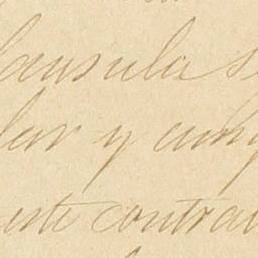 lausula se
lar y cump
este contrat